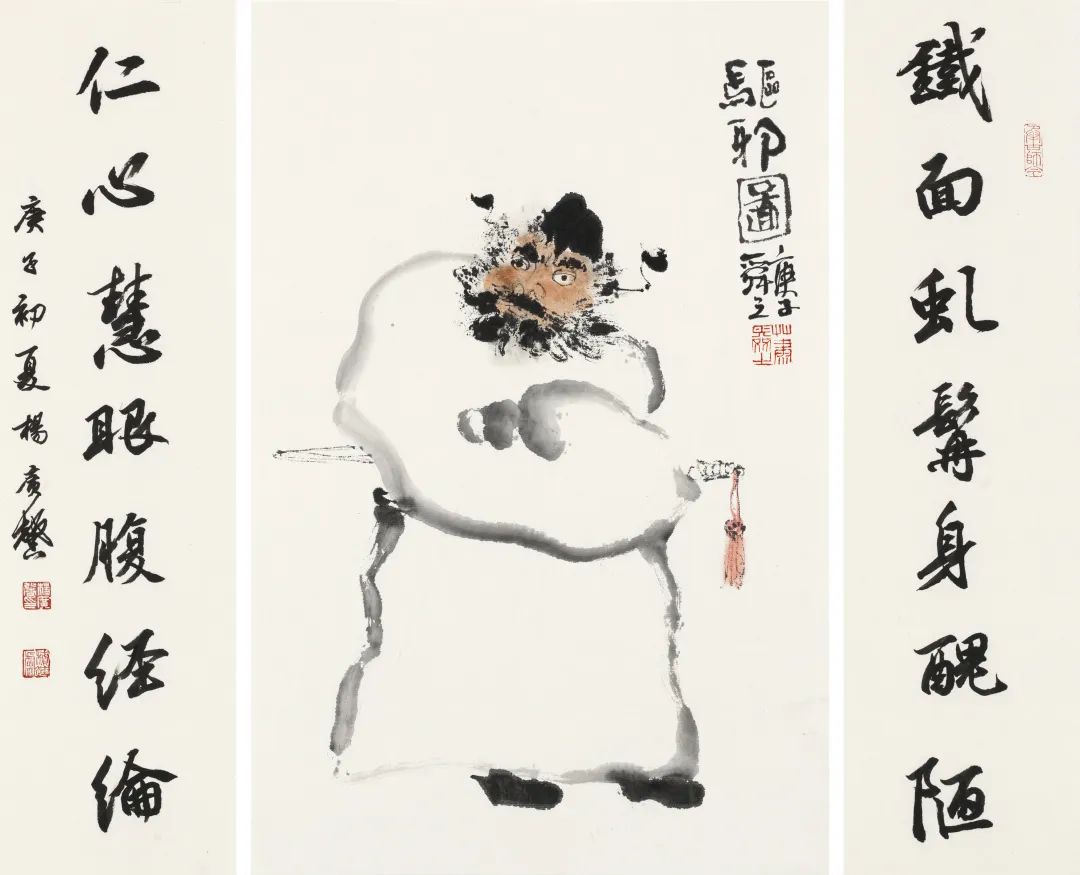 鐵面虬髯身醜陋
驅邪圖
庚子
仁心慧眼腹经綸
庚子初夏楊廣馨